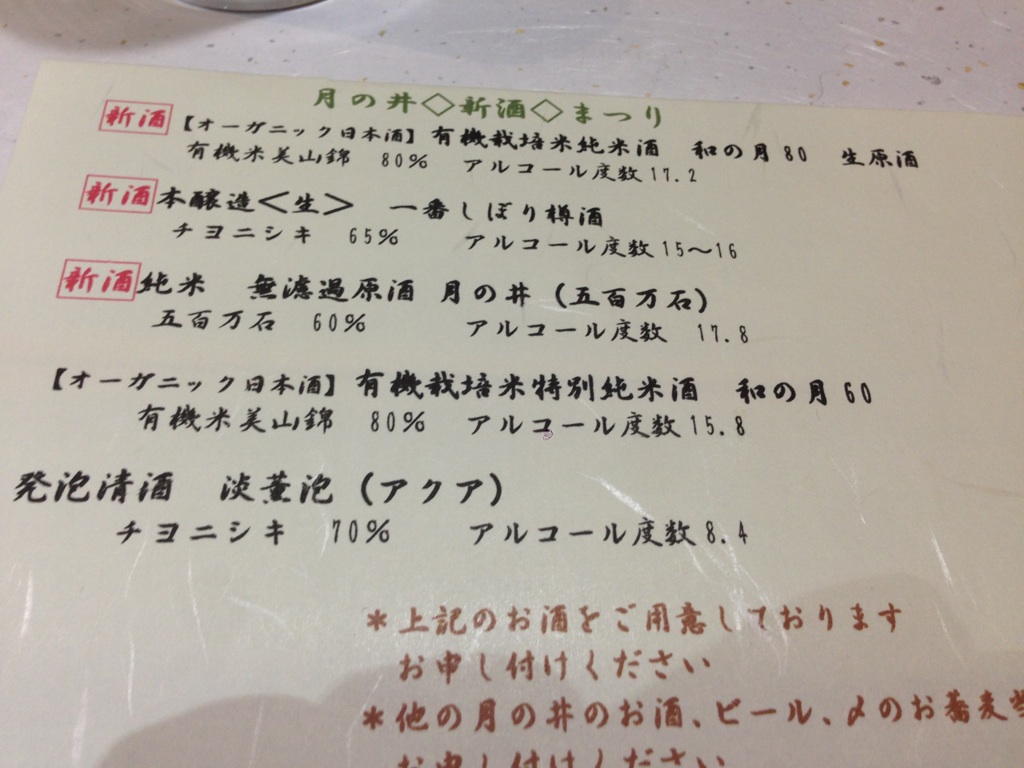 月の井◇新酒◇まつり
新酒 【オーガニック日本酒】有機栽培米純米酒 和の月80 生原酒
有機米美山錦 80% アルコール度数17.2
新酒 本醸造＜生＞ 一番しぼり樽酒
チヨニシキ 65% アルコール度数15～16
新酒 純米 無濾過原酒 月の井（五百万石）
五百万石 60% アルコール度数 17.8
【オーガニック日本酒】有機栽培米特別純米酒 和の月60
有機米美山錦 80% アルコール度数15.8
発泡清酒 淡薫泡（アクア）
チヨニシキ 70% アルコール度数8.4
＊上記のお酒をご用意しております
お申し付けください
＊他の月の井のお酒、ビール、〆のお蕎麦
お申し付けください